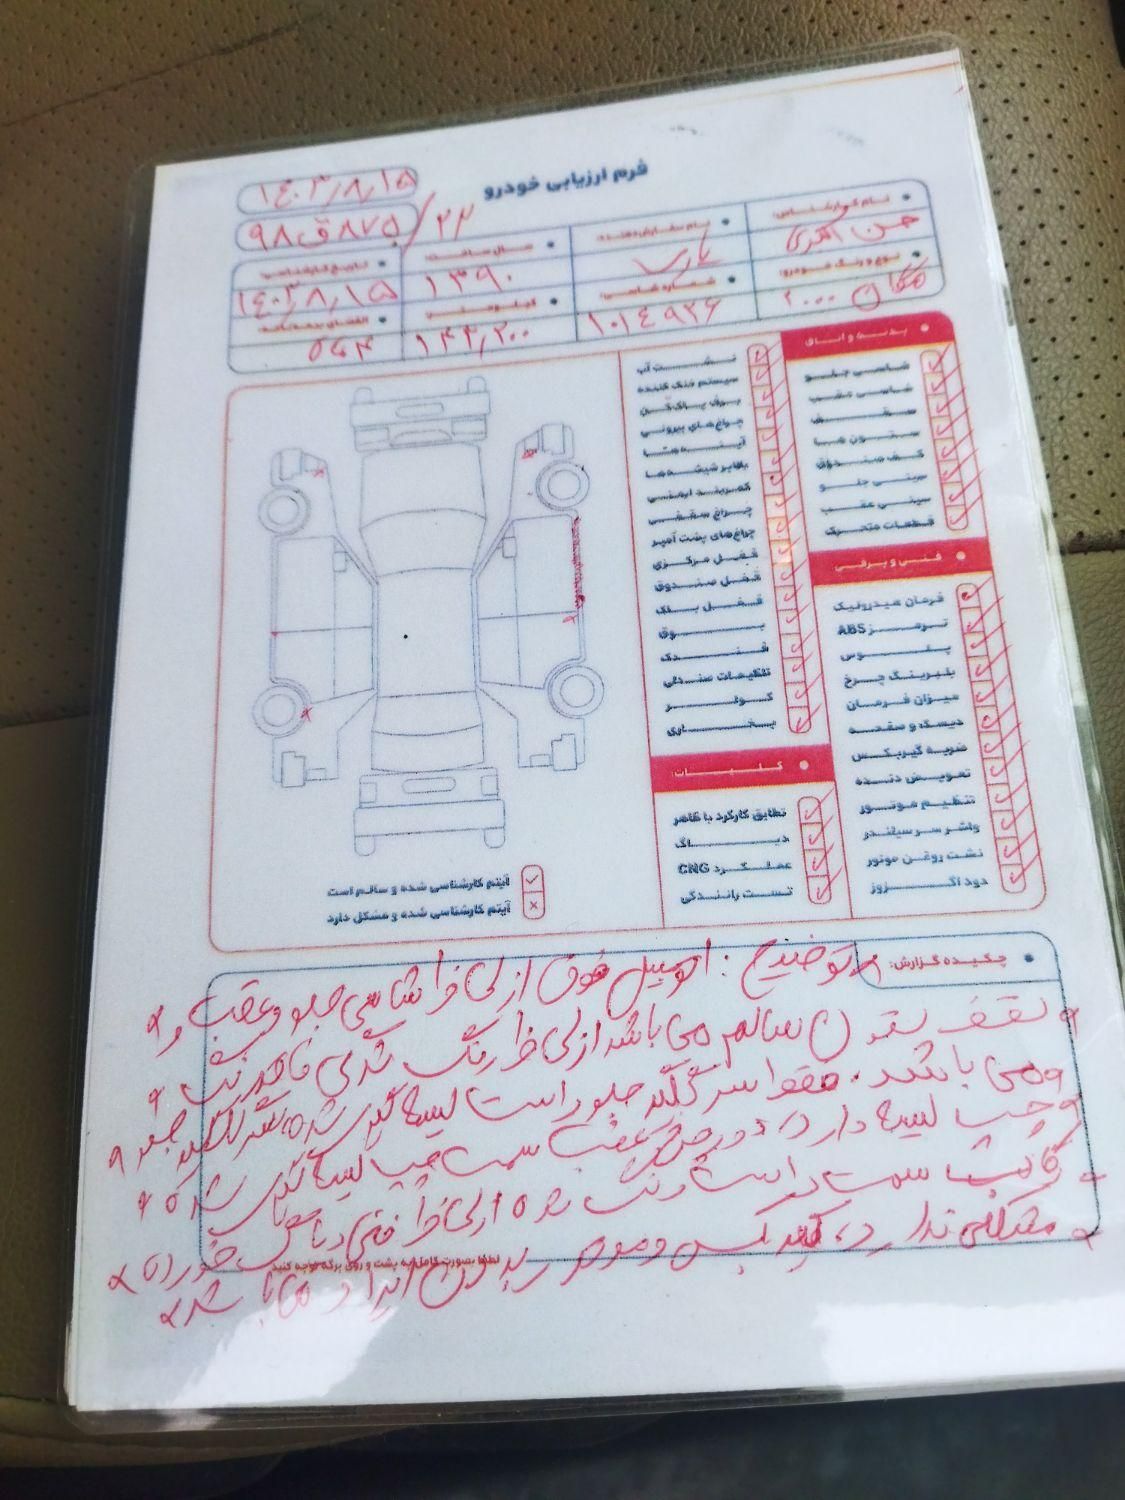 فرم ارزیابی خودرو
۱۴۰۳٫۸٫۱۵
۹۸ ق ۸۷۵ / ۲۲
نام کارشناس:
نام سفارش‌دهنده:
سال ساخت:
تاریخ کارشناسی:
حسن
پارس
۱۳۹۰
۱۴۰۳٫۸٫۱۵
نوع و رنگ خودرو:
شماره شاسی:
کیلومتر
انقضای بیمه‌نامه:
مگان ۲۰۰۰
۱۰۱۴۹۲۶
۱۴۳٫۲۰۰
بدنه و اتاق
شاسی جلو
شاسی عقب
سقف
ستون ها
کف صندوق
سینی جلو
سینی عقب
قطعات متحرک
فنی و برقی
فرمان هیدرولیک
ترمز ABS
پلوس
بلبرینگ چرخ
میزان فرمان
دیسک و صفحه
ضربه گیربکس
تعویض دنده
تنظیم موتور
واشر سر سیلندر
نشت روغن موتور
دود اگزوز
نشت آب
سیستم خنک کننده
برف پاک‌کن
چراغ‌های بیرونی
آینه‌ها
بالابر شیشه‌ها
کمربند ایمنی
چراغ سقفی
چراغ‌های پشت آمپر
قفل مرکزی
قفل صندوق
قفل باک
بوق
فندک
تنظیمات صندلی
کولر
بخاری
کلیات:
تطابق کارکرد با ظاهر
دیاگ
عملکرد CNG
تست رانندگی
✓ آیتم کارشناسی شده و سالم است
× آیتم کارشناسی شده و مشکل دارد
چکیده گزارش:
توضیح : اتومبیل فوق از لحاظ شاسی جلو و عقب و
سقف ستون سالم می باشد از لحاظ رنگ شدگی فاقد رنگ
می باشد . فقط سر گلگیر جلو راست لیسه گیری شده، سر گلگیر جلو
چپ لیسه دارد، دور عقب سمت چپ لیسه گیری شده
سمت راست رنگ شده از لحاظ فنی
مشکلی ندارد، گیربکس و موتور بدون ایراد می باشد
لطفا بصورت کامل به پشت و روی برگه توجه کنید